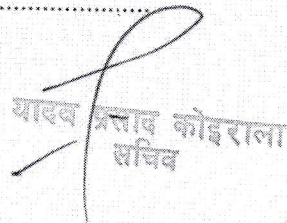 यादव प्रसाद कोइराला
सचिव